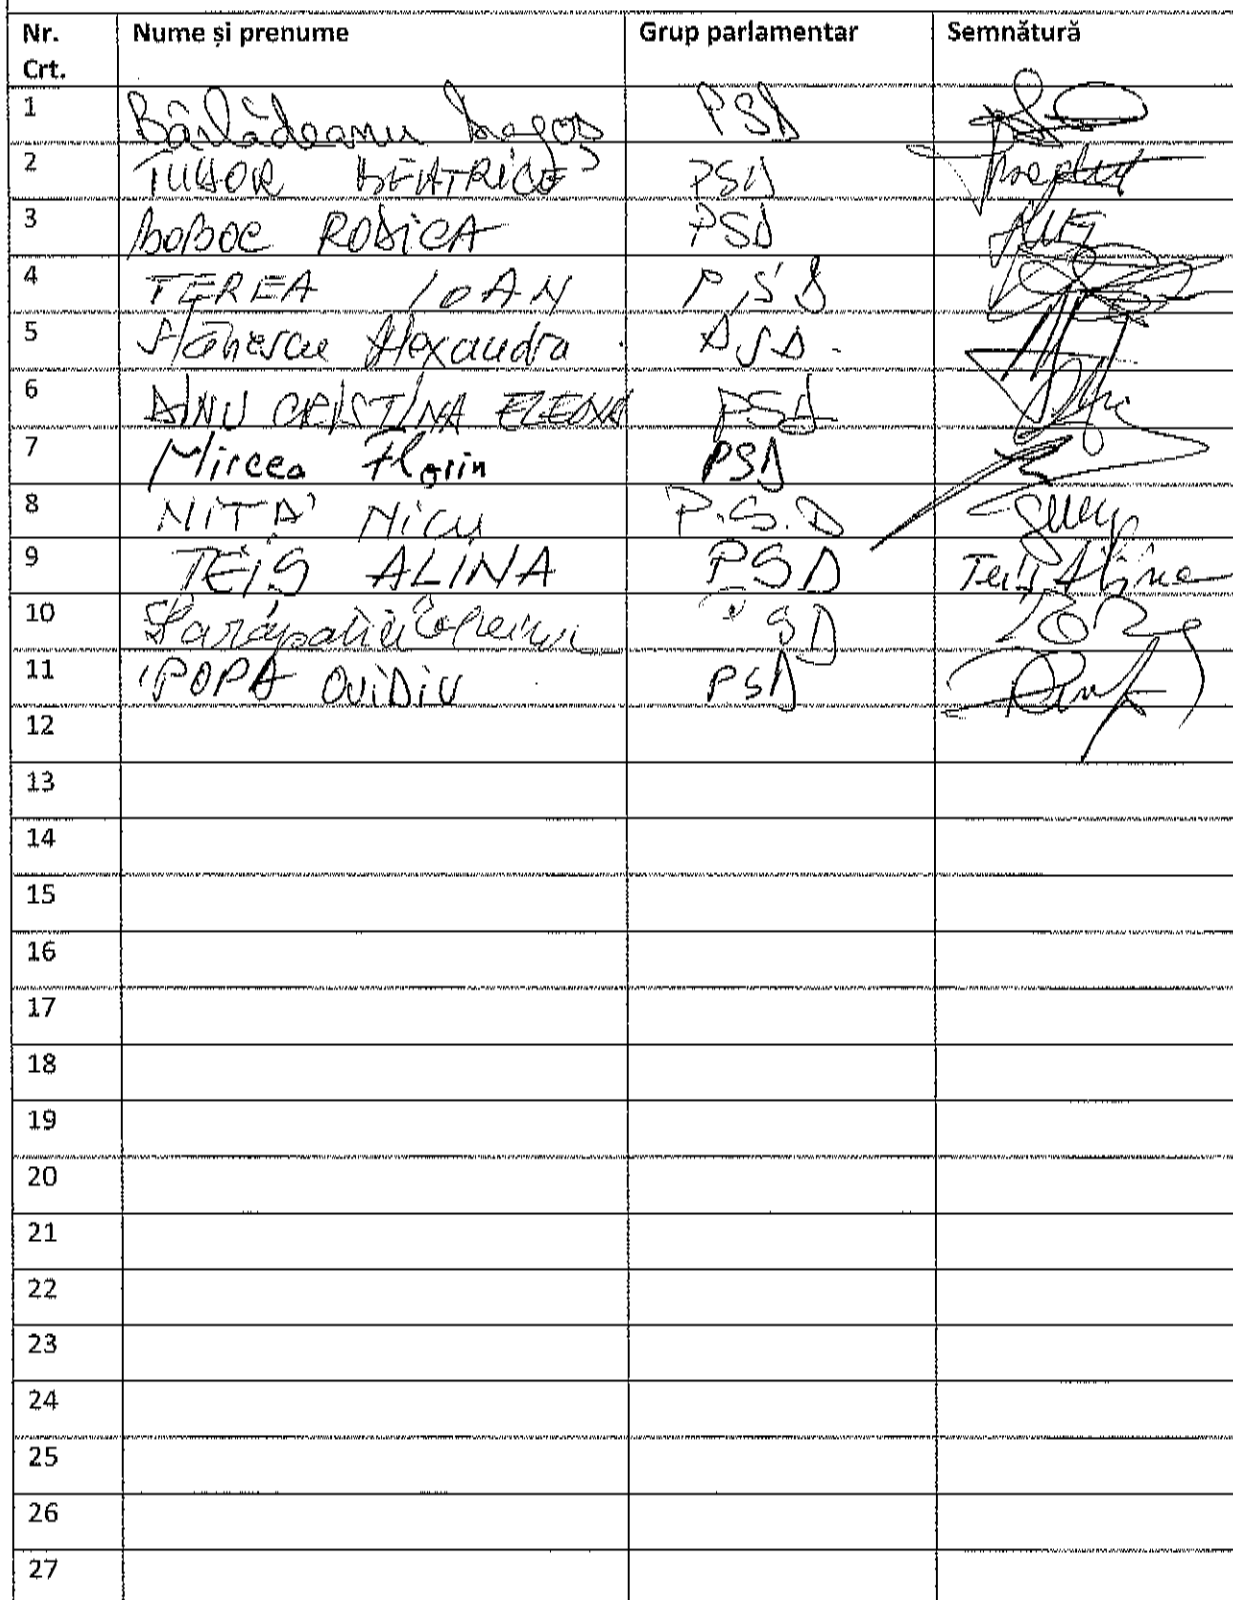 Nr. Crt. Nume și prenume Grup parlamentar Semnătură
1 Bârlădeanu PSD
2 TUDOR BEATRICE PSD
3 BOBOC RODICA PSD
4 TEREA IOAN P.S.D
5 Stănescu Alexandra PSD.
6 DINU CRISTINA ELENA PSD
7 Mircea Florin PSD
8 NIȚĂ Nicu P.S.D
9 TEIȘ ALINA PSD Teiș Alina
10 PSD
11 POPA OVIDIU PSD
12
13
14
15
16
17
18
19
20
21
22
23
24
25
26
27